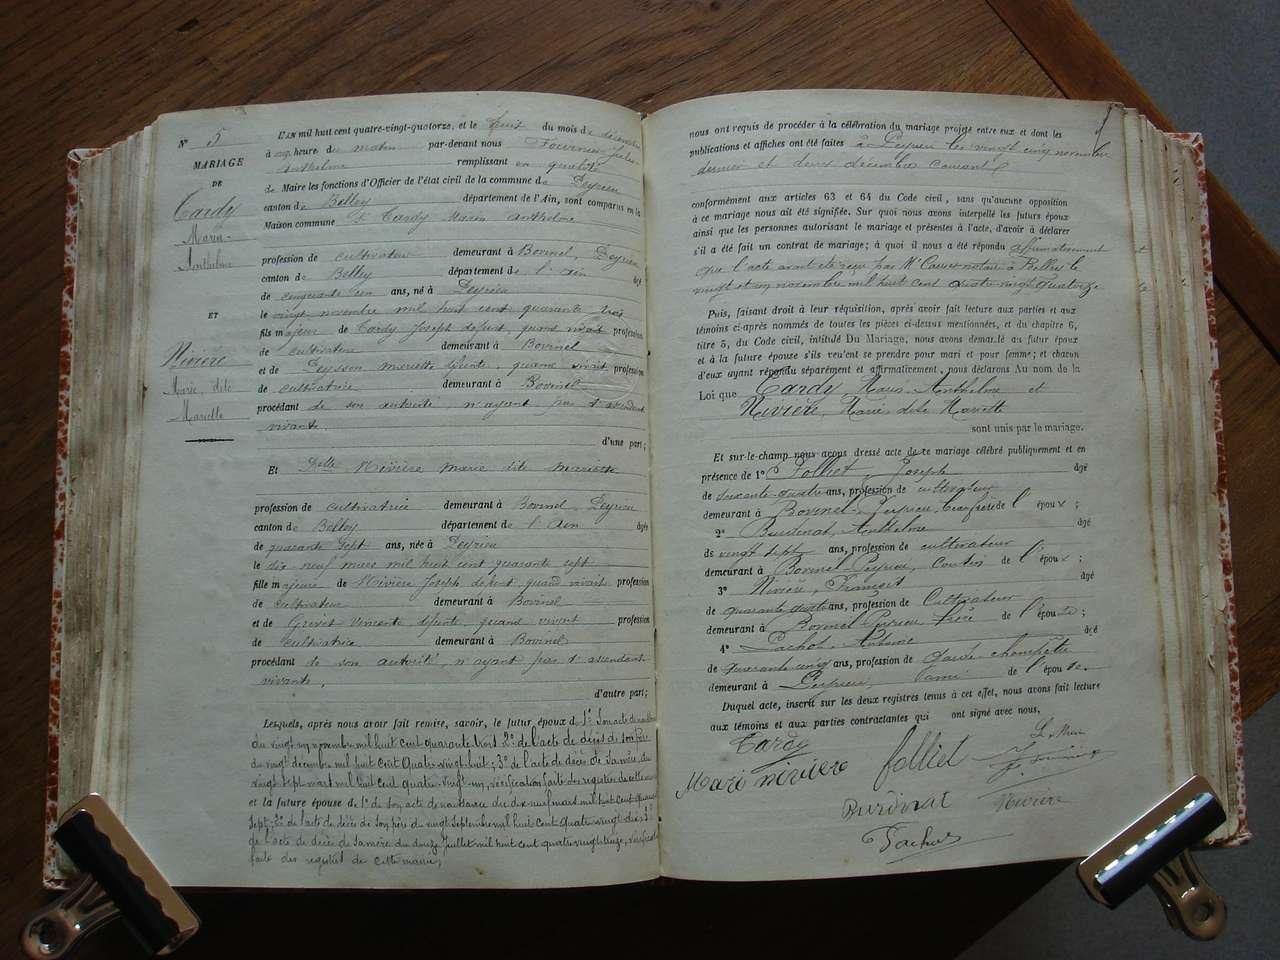 N° 5
MARIAGE
DE
Cardy
Marin
Anthelme
ET
Rivière
Marie, dite
Mariette
L'AN mil huit cent quatre-vingt-quatorze, et le huit du mois de décembre
à heure du matin par-devant nous Fournier Jules
Anthelme remplissant en qualité
de Maire les fonctions d'Officier de l'état civil de la commune de Peyrieu
canton de Belley département de l'Ain, sont comparus en la
Maison commune Cardy Marin Anthelme
profession de cultivateur demeurant à Bovinel, Peyrieu
canton de Belley département de l'Ain âgé
de cinquante un ans, né à Peyrieu
le vingt novembre mil huit cent quarante trois
fils majeur de Cardy Joseph défunt, quand vivait profession
de cultivateur demeurant à Bovinel
et de Peysson Mariette défunte, quand vivait profession
de cultivatrice demeurant à Bovinel
procédant de son autorité, n'ayant pas d'ascendant
vivants.
d'une part;
Et Delle Rivière Marie dite Mariette
profession de cultivatrice demeurant à Bovinel, Peyrieu
canton de Belley département de l'Ain âgée
de quarante sept ans, née à Peyrieu
le dix neuf mars mil huit cent quarante sept
fille majeure de Rivière Joseph défunt, quand vivait profession
de cultivateur demeurant à Bovinel
et de Vincente défunte, quand vivait profession
de cultivatrice demeurant à Bovinel
procédant de son autorité, n'ayant pas d'ascendant
vivants.
d'autre part;
Lesquels, après nous avoir fait remise, savoir, le futur époux de 1° Son acte de naissance
du vingt novembre mil huit cent quarante trois 2° de l'acte de décès de son père
du vingt décembre mil huit cent quatre vingt huit; 3° de l'acte de décès de sa mère, du
vingt sept mars mil huit cent quatre-vingt-un, vérification faite des registres de cette mairie
et la future épouse de 1° de son acte de naissance du dix neuf mars mil huit cent quarante
sept; 2° de l'acte de décès de son père du vingt septembre mil huit cent quatre vingt dix; 3°
de l'acte de décès de sa mère du douze juillet mil huit cent quatre vingt onze, vérification
faite des registres de cette mairie;
nous ont requis de procéder à la célébration du mariage projeté entre eux et dont les
publications et affiches ont été faites à Peyrieu les vingt cinq novembre
dernier et deux décembre courant
conformément aux articles 63 et 64 du Code civil, sans qu'aucune opposition
à ce mariage nous ait été signifiée. Sur quoi nous avons interpellé les futurs époux
ainsi que les personnes autorisant le mariage et présentes à l'acte, d'avoir à déclarer
s'il a été fait un contrat de mariage; à quoi il nous a été répondu affirmativement et
que l'acte avait été reçu par Me notaire à Belley le
vingt et un novembre mil huit cent quatre-vingt quatorze
Puis, faisant droit à leur réquisition, après avoir fait lecture aux parties et aux
témoins ci-après nommés de toutes les pièces ci-dessus mentionnées, et du chapitre 6,
titre 5, du Code civil, intitulé Du Mariage, nous avons demandé au futur époux
et à la future épouse s'ils veulent se prendre pour mari et pour femme; et chacun
d'eux ayant répondu séparément et affirmativement, nous déclarons Au nom de la
Loi que Cardy Marin Anthelme et
Rivière, Marie dite Mariette
sont unis par le mariage.
Et sur-le-champ nous avons dressé acte de ce mariage célébré publiquement et en
présence de 1° Folliet Joseph âgé
de soixante-quatre ans, profession de cultivateur
demeurant à Bovinel-Peyrieu, beau-frère de l'époux;
2° Burdinat Anthelme âgé
de vingt sept ans, profession de cultivateur
demeurant à Bovinel-Peyrieu, cousin de l'époux;
3° Rivière, François âgé
de quarante quatre ans, profession de Cultivateur
demeurant à Bovinel-Peyrieu frère de l'épouse;
4° Pachod Antoine âgé
de quarante cinq ans, profession de garde champêtre
demeurant à Peyrieu, ami de l'épouse.
Duquel acte, inscrit sur les deux registres tenus à cet effet, nous avons fait lecture
aux témoins et aux parties contractantes qui ont signé avec nous,
Cardy
Le Maire
Marie rivière folliet
Burdinat Rivière
Pachod